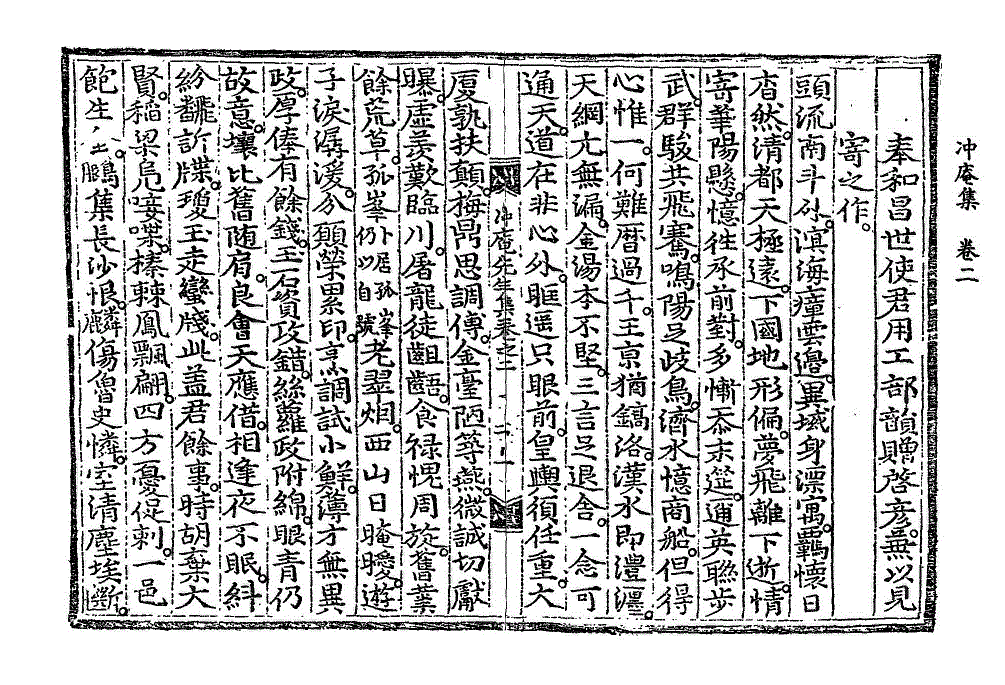 冲庵集　卷二
奉和昌世使君用工部韻贈啓彦兼以見
寄之作
頭流南斗外滇海瘴雲邊異域身漂寓羈懷日
杳然淸都天極遠下國地形偏夢飛離下逝情
寄華陽懸憶徃承前對多慚忝末筵逋英聯步
武群駿共飛騫鳴陽足歧鳥濟水憶商船但得
心惟一何難曆過千王京猶鎬洛漢水卽澧瀍
天網亢無漏金湯本不堅三言足退舍一念可
通天道在非心外眶遥只眼前皇輿須任重大
冲庵先生集卷之二　二十一
厦孰扶顚梅鼎思調傅金臺陋等燕微誠切獻
曝虛羨歎臨川屠龍徒齟齬食祿愧周旋舊業
餘荒草孤峯卜居孤峯仍以自號老翠烟西山日晻曖遊
子淚潺湲分願榮累印烹調試小鮮薄才無異
政厚俸有餘錢玉石資攻錯絲蘿政附綿眼靑仍
故意壤比舊随肩良會天應借相逢夜不眠斜
紛飜訴牒瓊玉走蠻牋此盖君餘事時胡棄大
賢稲粱凫唼喋榛棘鳳飄翩四方憂促剌一邑
飽生 鵩集長沙恨麟傷魯史憐室淸塵埃斷